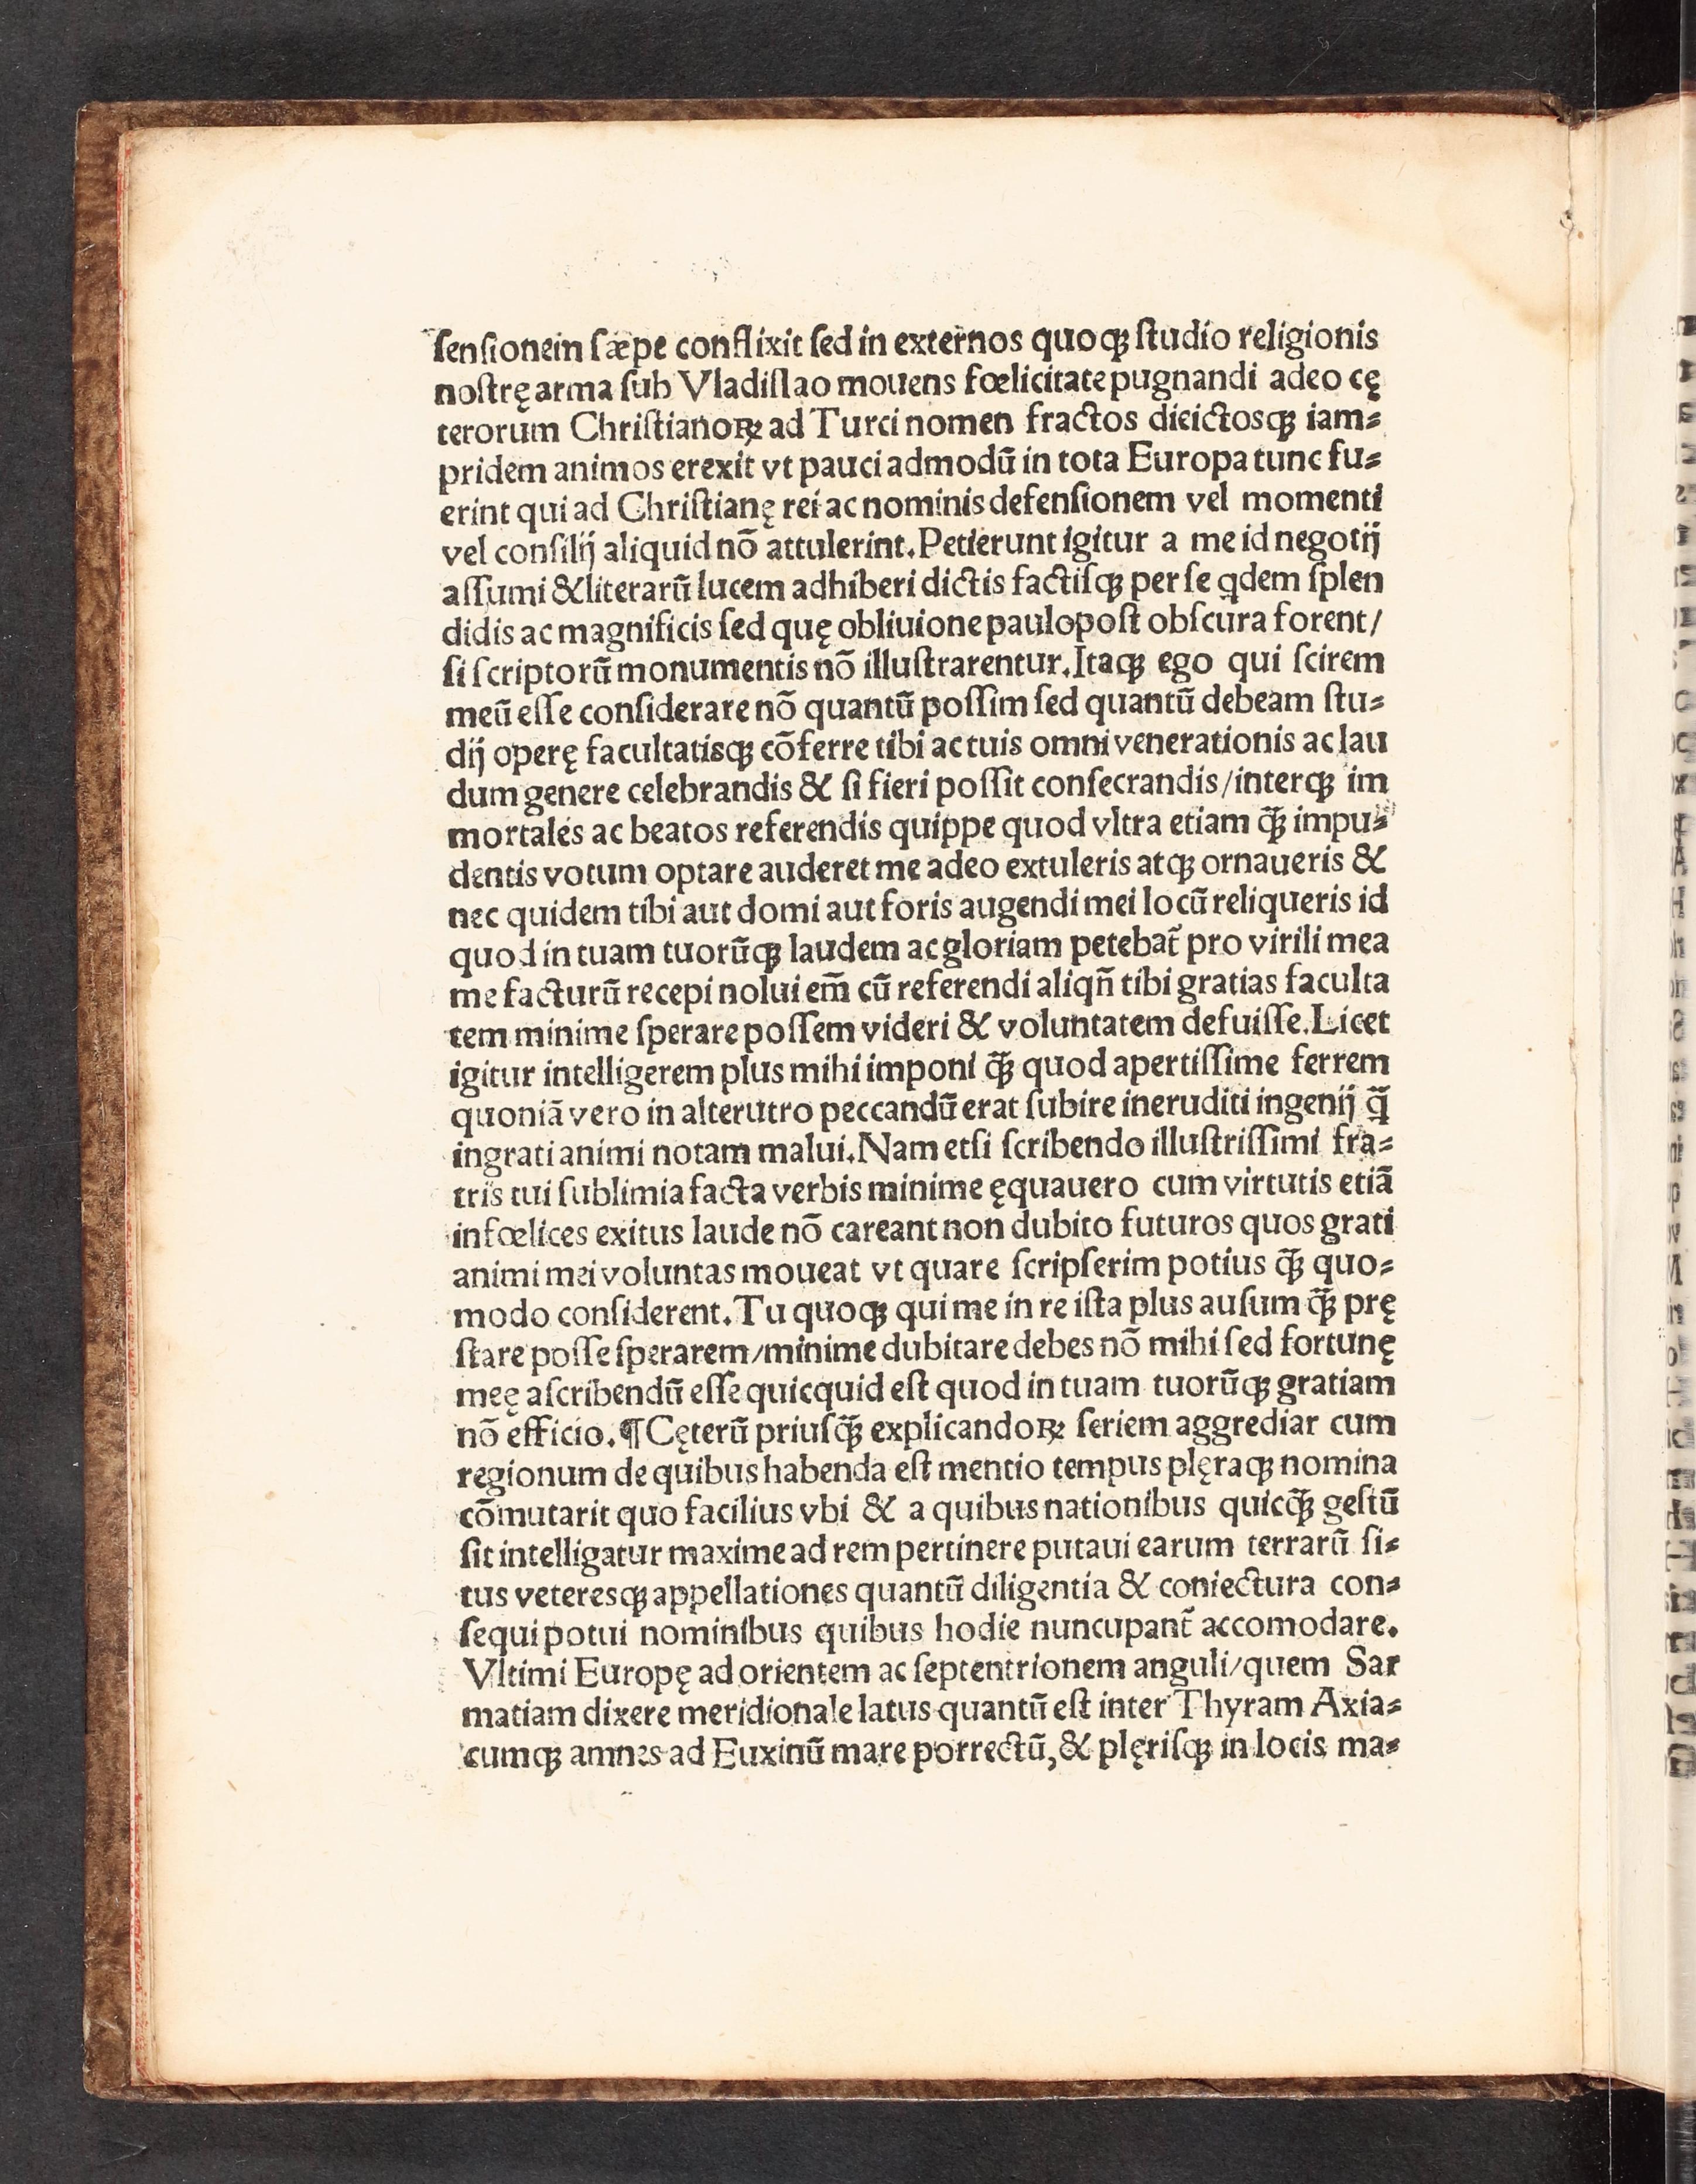 ſenſionem ſæpe conflixit ſed in externos quoqꝫ ſtudio religionis
noſtrę arma ſub Vladiſlao mouens fœlicitate pugnandi adeo cę
terorum Chriſtianoꝝ ad Turci nomen fractos dieictosqꝫ iam⸗
pridem animos erexit vt pauci admodū in tota Europa tunc fu⸗
erint qui ad Chriſtianę rei ac nominis defenſionem vel momenti
vel conſilij aliquid nō attulerint. Petierunt igitur a me id negotij
aſſumi & literarū lucem adhiberi dictis factiſqꝫ per ſe qdem ſplen
didis ac magnificis ſed quę obliuione paulopoſt obſcura forent/
ſi ſcriptorū monumentis nō illuſtrarentur. Itaqꝫ ego qui ſcirem
meū eſſe conſiderare nō quantū poſſim ſed quantū debeam ſtu⸗
dij operę facultatisqꝫ cōferre tibi ac tuis omni venerationis ac lau
dum genere celebrandis & ſi fieri poſſit conſecrandis/interqꝫ im
mortales ac beatos referendis quippe quod vltra etiam qꝫ̃ impu⸗
dentis votum optare auderet me adeo extuleris atqꝫ ornaueris &
nec quidem tibi aut domi aut foris augendi mei locū reliqueris id
quod in tuam tuorūqꝫ laudem ac gloriam petebat̃ pro virili mea
me facturū recepi nolui em̄ cū referendi aliqñ tibi gratias faculta
tem minime ſperare poſſem videri & voluntatem defuiſſe. Licet
igitur intelligerem plus mihi imponi qꝫ̃ quod apertiſſime ferrem
quoniā vero in alterutro peccandū erat ſubire ineruditi ingenij q̃
ingrati animi notam malui. Nam etſi ſcribendo illuſtriſſimi fra⸗
tris tui ſublimia facta verbis minime ęquauero cum virtutis etiā
infœlices exitus laude nō careant non dubito futuros quos grati
animi mei voluntas moueat vt quare ſcripſerim potius qꝫ̃ quo⸗
modo conſiderent. Tu quoqꝫ qui me in re iſta plus auſum qꝫ̃ prę
ſtare poſſe ſperarem/minime dubitare debes nō mihi ſed fortunę
meę aſcribendū eſſe quicquid eſt quod in tuam tuorūqꝫ gratiam
nō efficio. ¶ Cęterū priuſqꝫ̃ explicandoꝝ ſeriem aggrediar cum
regionum de quibus habenda eſt mentio tempus plęraqꝫ nomina
cōmutarit quo facilius vbi & a quibus nationibus quicqꝫ̃ geſtū
ſit intelligatur maxime ad rem pertinere putaui earum terrarū ſi⸗
tus veteresqꝫ appellationes quantū diligentia & coniectura con⸗
ſequi potui nominibus quibus hodie nuncupant̃ accomodare.
Vltimi Europę ad orientem ac ſeptentrionem anguli/quem Sar
matiam dixere meridionale latus quantū eſt inter Thyram Axia⸗
cumqꝫ amnes ad Euxinū mare porrectū, & plęriſqꝫ in locis ma⸗